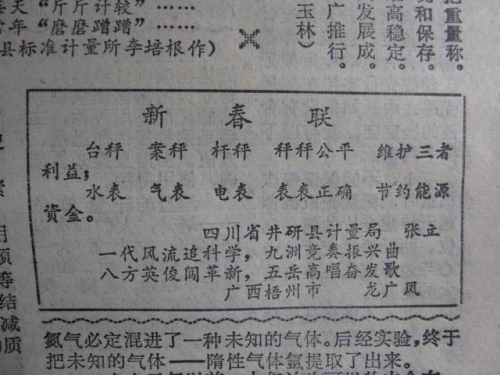 每天“斤斤计较”……
年“磨磨蹭蹭”……
县标准计量所李培根作）
玉林）
广推行。
发展成。
高稳定。
和保存。
把重量称。
新春联
台秤 案秤 杆秤 秤秤公平 维护三者
利益；
水表 气表 电表 表表正确 节约能源
资金。
四川省井研县计量局 张立
一代风流追科学，九洲竞奏振兴曲
八方英俊闯革新，五岳高唱奋发歌
广西梧州市 龙广凤
氮气必定混进了一种未知的气体。后经实验，终于
把未知的气体——隋性气体氩提取了出来。